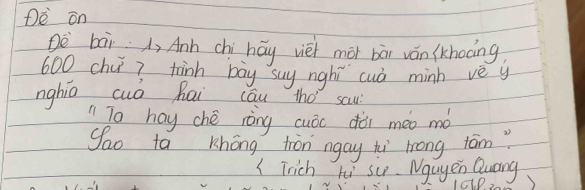 Đề ôn
Đề bài: 1, Anh chị hãy viết một bài văn (khoảng
600 chữ) trình bày suy nghĩ của mình về ý
nghĩa của hai câu thơ sau:
"Ta hay chê rằng cuộc đời méo mó
Sao ta không tròn ngay từ trong tâm"
( Trích tự sự - Nguyễn Quang